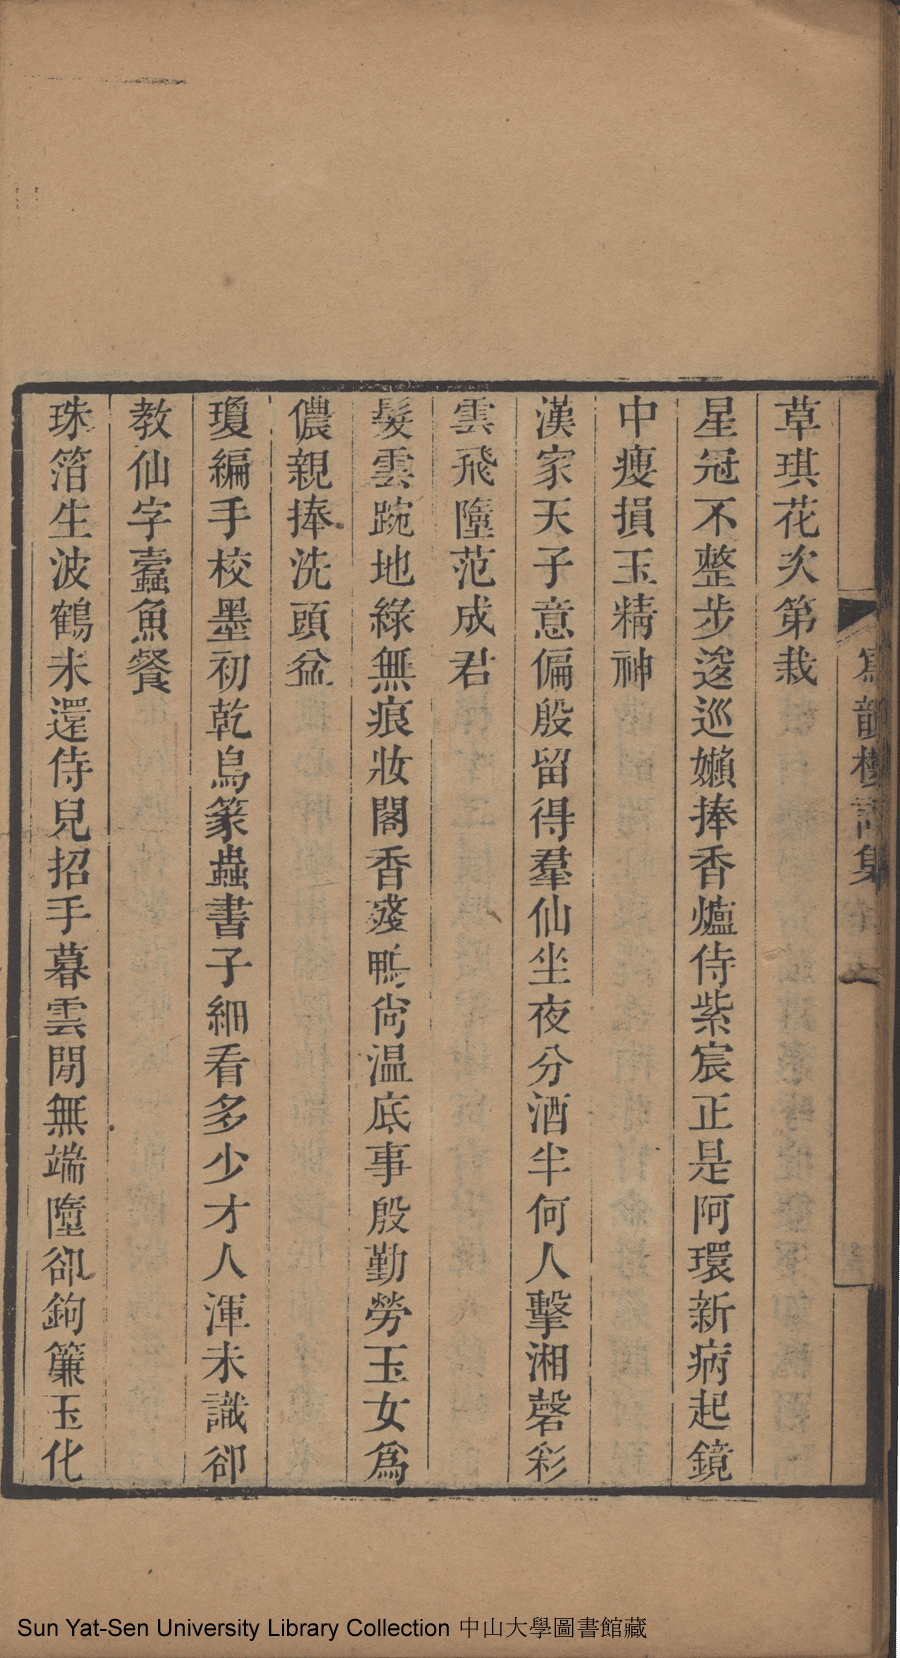 草琪花次第栽
星冠不整步逡巡嬾捧香爐侍紫宸正是阿環新病起鏡
中瘦損玉精神
漢家天子意偏殷留得羣仙坐夜分酒半何人擊湘磬彩
雲飛墮范成君
髮雲踠地綠無痕妝閣香殘鴨尙温底事殷勤勞玉女爲
儂親捧洗頭盆
瓊編手校墨初乾鳥篆蟲書子細看多少才人渾未識卻
教仙字蠹魚餐
珠箔生波鶴未還侍兒招手暮雲閒無端墮卻鉤簾玉化
韻樓詩集
Sun Yat-Sen University Library Collection 中山大學圖書館藏